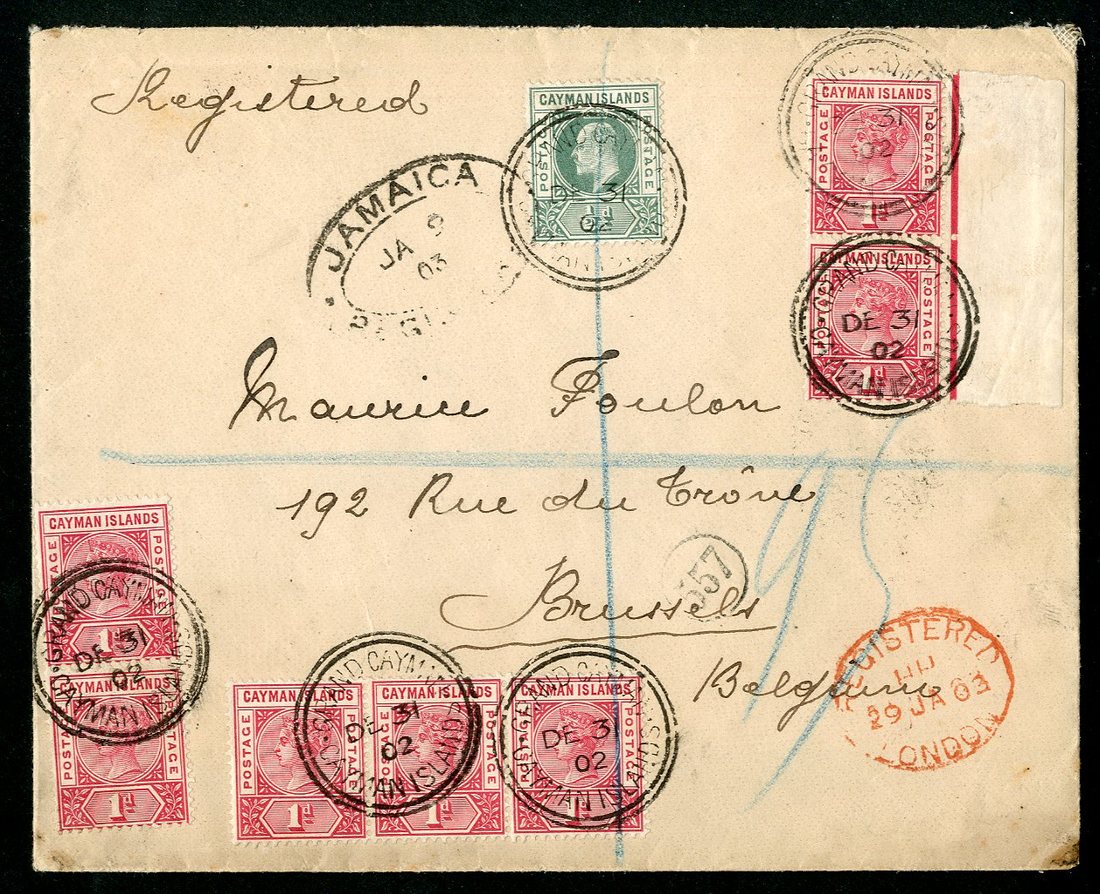 Registered
CAYMAN ISLANDS
POSTAGE
POSTAGE
½d
GRAND
DE 31
02
CAYMAN ISLANDS
POSTAGE
POSTAGE
1d
GRAND CAYM
31
02
CAYMAN ISLANDS
POSTAGE
POSTAGE
1d
GRAND CA
DE 31
02
JAMAICA
JA 9
03
Maurice Foulon
192 Rue du Trône
Brussels
Belgium
57
REGISTERED
29 JA 03
LONDON
CAYMAN ISLANDS
POSTAGE
POSTAGE
1d
GRAND CAYM
DE 31
02
POSTAGE
POSTAGE
1d
CAYMAN ISLANDS
POSTAGE
1d
CAYMAN ISLANDS
POSTAGE
1d
GRAND CAYMAN
DE 31
02
CAYMAN ISLANDS
CAYMAN ISLANDS
POSTAGE
POSTAGE
1d
GRAND CAYMAN
DE 3
02
CAYMAN ISLANDS